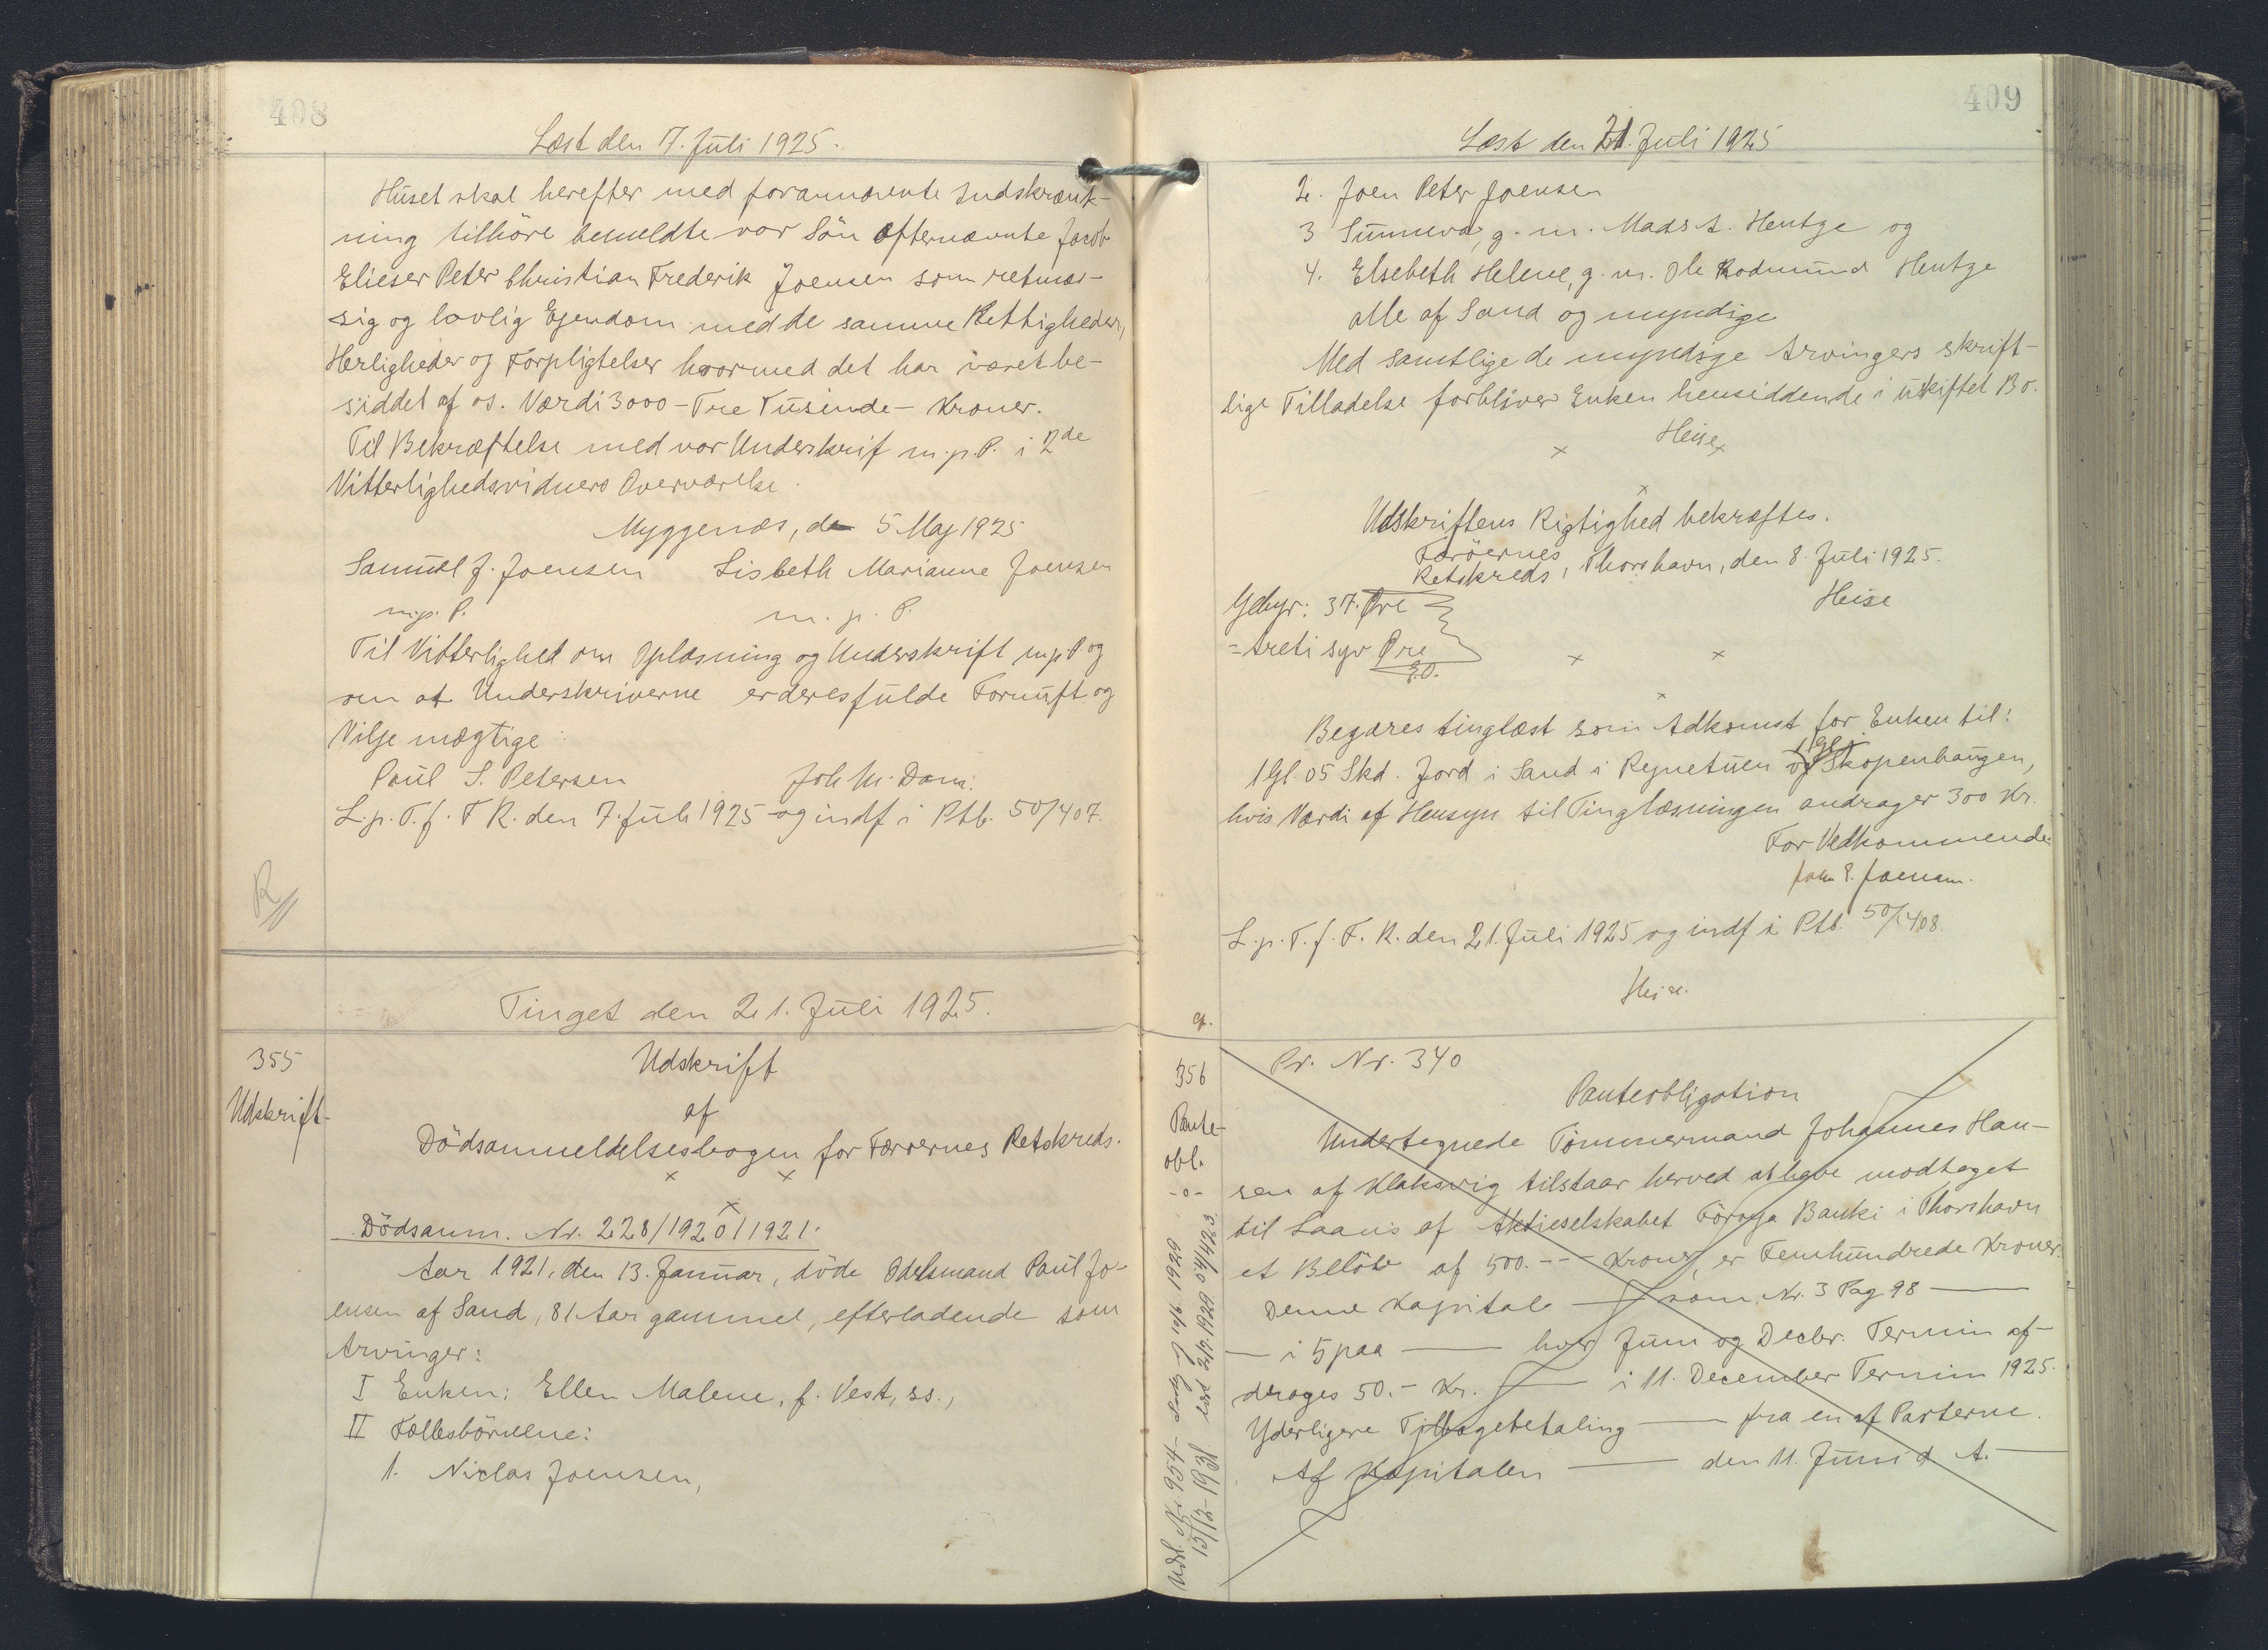 408
Læst den 7. Juli 1925.
Huset skal herefter med forannævnte Indskrænk-
ning tilhöre bemeldte vor Sön Efternævnte Jacob
Elieser Peter Christian Frederik Joensen som retmæs-
sig og lovlig Ejendom med de samme Rettigheder,
Herligheder og Forpligtelser hvormed det har været be-
siddet af os. Værdi 3000 - Tre Tusinde - Kroner.
Til Bekræftelse med vor Underskrif m.p.P. i 2de
Vitterlighedsvidners Overværelse.
Myggenæs, d 5 Maj 1925
Samuel J. Joensen Lisbeth Marianne Joensen
m.p.P. m.p.P.
Til Vitterlighed om Oplæsning og Underskrift m.p.P og
om at Underskriverne er deres fulde Fornuft og
Vilje mægtige
Paul S. Petersen Joh M. Dam.
L.p.T.f.F R. den 7. Juli 1925 og indf i Ptb. 50/407.
R
Tinget den 21. Juli 1925.
355
Udskrift-
Udskrift
af
Dödsanmeldelsesbogen for Færøernes Retskreds.
x x
x
Dödsanm. Nr. 228/1920/1921.
Aar 1921, den 13. Januar, döde Odelsmand Paul Jo-
ensen af Sand, 81 Aar gammel, efterladende som
Arvinger:
I Enken: Ellen Malene, f. Vest, ss.,
II Fællesbörnene:
1. Niclas Joensen,
409
Læst den 21. Juli 1925
2. Joen Peter Joensen
3 Sunneva, g. m. Mads A. Hentze og
4. Elsebeth Helene, g. m. Ole Rodmund Hentze
alle af Sand og myndige
Med samtlige de myndige Arvingers skrift-
lige Tilladelse forbliver Enken hensiddende i uskiftet Bo.
Heise
x x
x
Udskriftens Rigtighed bekræftes.
Færöernes
Retskreds, Thorshavn, den 8. Juli 1925.
Gebyr: 37. Øre Heise
= treti syv Øre
E.O.
x x
x
Begæres tinglæst som Adkomst for Enken til:
1 Gl. 05 Skd. Jord i Sand i Regnetuen og Skopenhaugen,
hvis Værdi af Hensyn til Tinglæsningen andrager 300 Kr.
For Vedkommende:
Joen P. Joensen.
L.p.T.f.F.R. den 21. Juli 1925 og indf i Ptb. 50/408.
Heise.
356
Pante-
obl.
-o-
Pr. Nr. 340
Panteobligation
Undertegnede Tömmermand Johannes Han-
sen af Klaksvig tilstaar herved at have modtaget
til Laans af Aktieselskabet Föroya Banki i Thorshavn
et Belöb af 500.-- Kroner, er Femhundrede Kroner.
Denne Kapital — som Nr. 3 Pag 98 —
— i 5 paa — hver Juni og Decbr. Termin af-
drages 50.- Kr. — i 11. December Termin 1925.
Yderligere Tilbagebetaling — fra en af Parterne.
Af Kapitalen — den 11. Juni d A. —